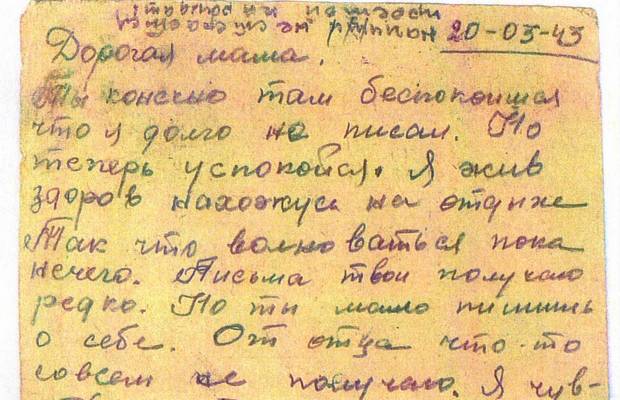 20-03-43
Дорогая мама.
Ты конечно там беспокоишся
что я долго не писал. Но
теперь успокойся. Я жив
здоров нахожусь на отдыхе
Так что волноваться пока
нечего. Письма твои получаю
редко. Но ты мало пишишь
о себе. От отца что-то
совсем не получаю. Я чув-